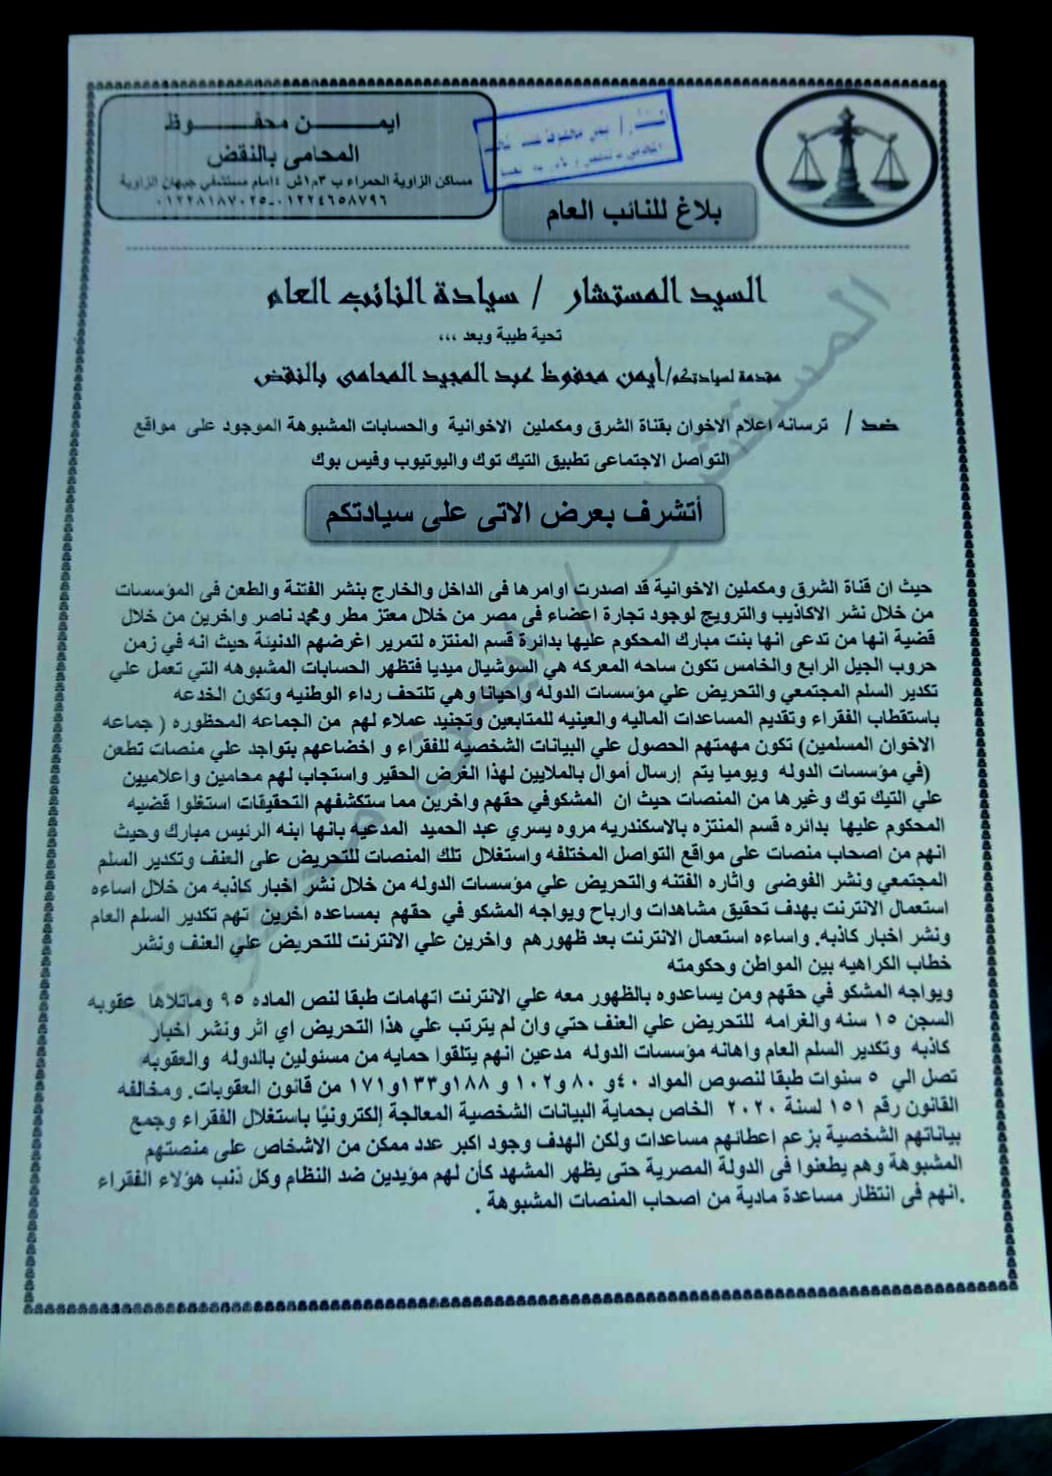 ايمن محفوظ
المحامى بالنقض
مساكن الزاوية الحمراء ب ٣م١ش ٤امام مستشفي جيهان الزاوية
٠١٢٢٤٦٥٨٧٩٦-٠١٢٢٨١٨٧٠٢٥
بلاغ للنائب العام
السيد المستشار / سيادة النائب العام
تحية طيبة وبعد ،،،
مقدمة لسيادتكم/أيمن محفوظ عبد المجيد المحامى بالنقض
ضد / ترسانه اعلام الاخوان بقناة الشرق ومكملين الاخوانية والحسابات المشبوهة الموجود على مواقع
التواصل الاجتماعى تطبيق التيك توك واليوتيوب وفيس بوك
أتشرف بعرض الاتى على سيادتكم
حيث ان قناة الشرق ومكملين الاخوانية قد اصدرت اوامرها فى الداخل والخارج بنشر الفتنة والطعن فى المؤسسات
من خلال نشر الاكاذيب والترويج لوجود تجارة اعضاء فى مصر من خلال معتز مطر ومحمد ناصر واخرين من خلال
قضية انها من تدعى انها بنت مبارك المحكوم عليها بدائرة قسم المنتزه لتمرير اغرضهم الدنيئة حيث انه في زمن
حروب الجيل الرابع والخامس تكون ساحه المعركه هي السوشيال ميديا فتظهر الحسابات المشبوهه التي تعمل علي
تكدير السلم المجتمعي والتحريض علي مؤسسات الدوله واحيانا وهي تلتحف رداء الوطنيه وتكون الخدعه
باستقطاب الفقراء وتقديم المساعدات الماليه والعينيه للمتابعين وتجنيد عملاء لهم من الجماعه المحظوره ( جماعه
الاخوان المسلمين) تكون مهمتهم الحصول علي البيانات الشخصيه للفقراء و اخضاعهم بتواجد علي منصات تطعن
(في مؤسسات الدوله ويوميا يتم إرسال أموال بالملايين لهذا الغرض الحقير واستجاب لهم محامين واعلاميين
علي التيك توك وغيرها من المنصات حيث ان المشكوفي حقهم واخرين مما ستكشفهم التحقيقات استغلوا قضيه
المحكوم عليها بدائره قسم المنتزه بالاسكندريه مروه يسري عبد الحميد المدعيه بانها ابنه الرئيس مبارك وحيث
انهم من اصحاب منصات على مواقع التواصل المختلفه واستغلال تلك المنصات للتحريض على العنف وتكدير السلم
المجتمعي ونشر الفوضى واثاره الفتنه والتحريض علي مؤسسات الدوله من خلال نشر اخبار كاذبه من خلال اساءه
استعمال الانترنت بهدف تحقيق مشاهدات وارباح ويواجه المشكو في حقهم بمساعده اخرين تهم تكدير السلم العام
ونشر اخبار كاذبه. واساءه استعمال الانترنت بعد ظهورهم واخرين علي الانترنت للتحريض علي العنف ونشر
خطاب الكراهيه بين المواطن وحكومته
ويواجه المشكو في حقهم ومن يساعدوه بالظهور معه علي الانترنت اتهامات طبقا لنص الماده ٩٥ وماتلاها عقوبه
السجن ١٥ سنه والغرامه للتحريض علي العنف حتي وان لم يترتب علي هذا التحريض اي اثر ونشر اخبار
كاذبه وتكدير السلم العام واهانه مؤسسات الدوله مدعين انهم يتلقوا حمايه من مسئولين بالدوله والعقوبه
تصل الي ٥ سنوات طبقا لنصوص المواد ٤٠و ٨٠ و١٠٢ و ١٨٨و١٣٣و١٧١ من قانون العقوبات. ومخالفه
القانون رقم ١٥١ لسنة ٢٠٢٠ الخاص بحماية البيانات الشخصية المعالجة إلكترونيًا باستغلال الفقراء وجمع
بياناتهم الشخصية بزعم اعطائهم مساعدات ولكن الهدف وجود اكبر عدد ممكن من الاشخاص على منصتهم
المشبوهة وهم يطعنوا فى الدولة المصرية حتى يظهر المشهد كأن لهم مؤيدين ضد النظام وكل ذنب هؤلاء الفقراء
.انهم فى انتظار مساعدة مادية من اصحاب المنصات المشبوهة .